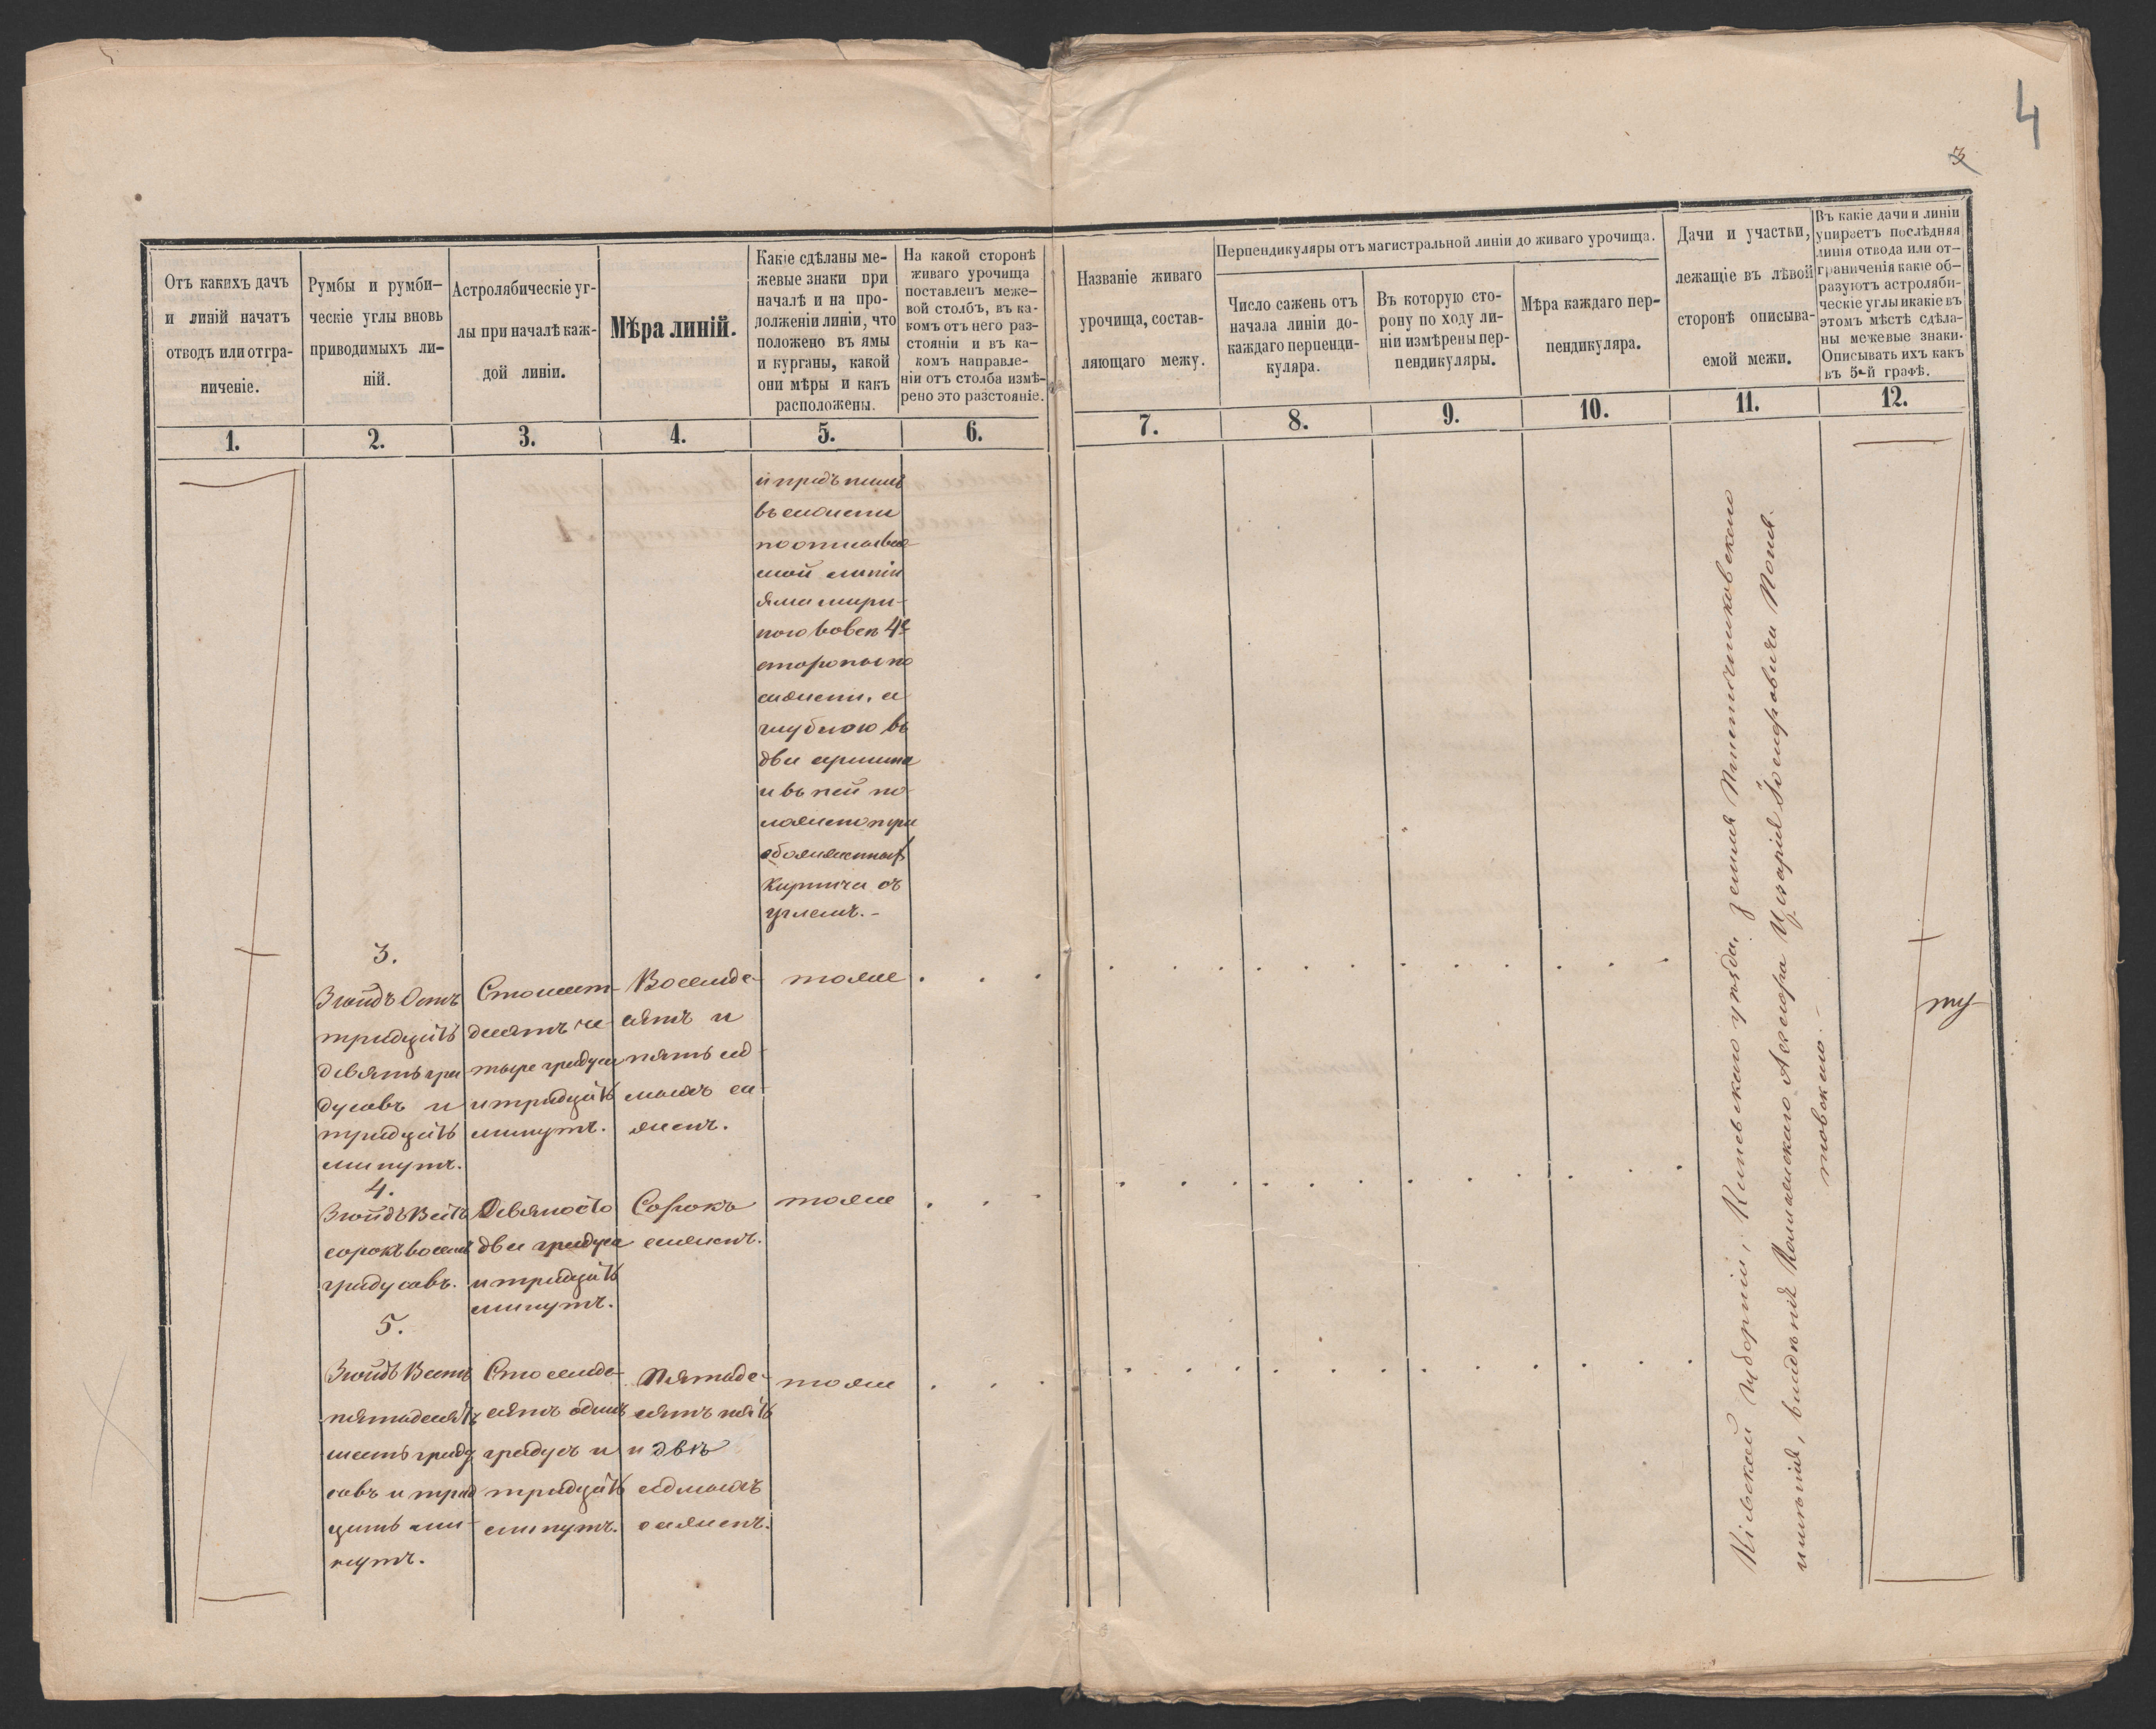 4
3
Отъ какихъ дачъ
и линій начатъ
отводъ или отгра-
ниченіе.
Румбы и румби-
ческіе углы вновь
приводимыхъ ли-
ній.
Астролябическіе уг-
лы при началѣ каж-
дой линіи.
Мѣра линій.
Какіе сдѣланы ме-
жевые знаки при
началѣ и на про-
долженіи линіи, что
положено въ ямы
и курганы, какой
они мѣры и какъ
расположены.
На какой сторонѣ
живаго урочища
поставленъ меже-
вой столбъ, въ ка-
комъ отъ него раз-
стояніи и въ ка-
комъ направле-
ніи отъ столба измѣ-
рено это разстояніе.
Названіе живаго
урочища, состав-
ляющаго межу.
Перпендикуляры отъ магистральной линіи до живаго урочища.
Число сажень отъ
начала линіи до-
каждаго перпенди-
куляра.
Въ которую сто-
рону по ходу ли-
ніи измѣрены пер-
пендикуляры.
Мѣра каждаго пер-
пендикуляра.
Дачи и участки,
лежащіе въ лѣвой
сторонѣ описыва-
емой межи.
Въ какіе дачи и линіи
упираетъ послѣдняя
линія отвода или от-
граниченія какіе об-
разуютъ астроляби-
ческіе углы и какіе въ
этомъ мѣстѣ сдѣла-
ны межевые знаки.
Описывать ихъ какъ
въ 5-й графѣ.
1.
2.
3.
4.
5.
6.
7.
8.
9.
10.
11.
12.
и предъ нимъ
въ сажени
по описывае-
мой линіи
яма шири-
ною во всѣ 4е
стороны по
сажени, а
глубиною въ
два аршина
и въ ней по-
ложено три
обожженныхъ
кирпича съ
углемъ.-
3.
Зюйдъ Остъ
тридцать
девять гра
дусовъ и
тридцать
минутъ.
Сто шест-
десятъ че-
тыре градуса
и тридцать
минутъ.
Восемде-
сятъ и
пять сед-
мыхъ са-
женъ.
тоже
4.
Зюйдъ Вестъ
сорокъ восемь
градусовъ.
Девяносто
два градуса
и тридцать
минутъ.
Сорокъ
саженъ.
тоже
5.
Зюйдъ Вестъ
пятьдесятъ
шесть граду
совъ и трид
цать ми-
нутъ.
Сто семде-
сятъ одинъ
градусъ и
тридцать
минутъ.
Пятьде-
сятъ пять
и двѣ
седмыхъ
саженъ.
тоже
Кіевской губерніи, уѣзда, земля
имѣнія, владѣнія Коллежскаго Ассесора